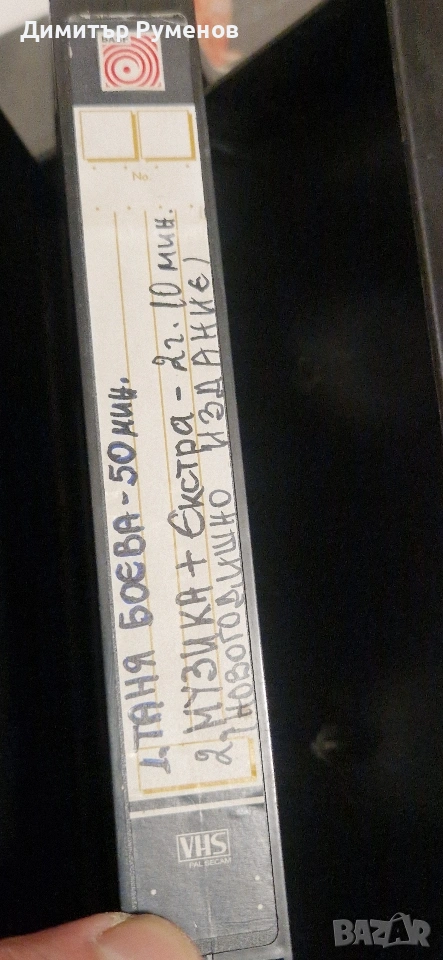 Димитър Руменов
No.
1. ТАНЯ БОЄВА - 50 мин.
2. МУЗИКА + Єкстра - 2 г. 10 мин.
(НОВОГОДИШНО ИЗДАНИЄ)
VHS
PAL SECAM
BAZAR